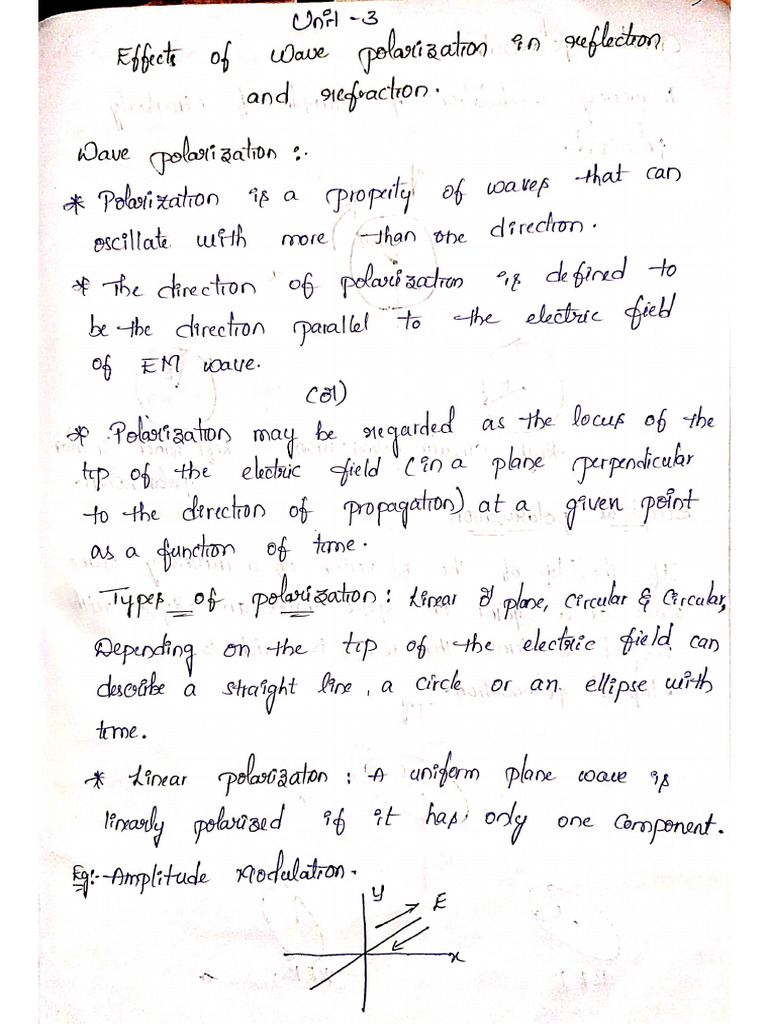 Unit -3
Effects of wave polarization in reflection
and refraction.
Wave polarization :-
* Polarization is a property of waves that can
oscillate with more than one direction.
* The direction of polarization is defined to
be the direction parallel to the electric field
of EM wave.
(or)
* Polarization may be regarded as the locus of the
tip of the electric field (in a plane perpendicular
to the direction of propagation) at a given point
as a function of time.
Types of polarization: Linear or plane, circular & circular,
Depending on the tip of the electric field can
describe a straight line, a circle or an ellipse with
time.
* Linear polarizaton : A uniform plane wave is
linearly polarized if it has only one component.
Eg:- Amplitude Modulation.
y
E
x